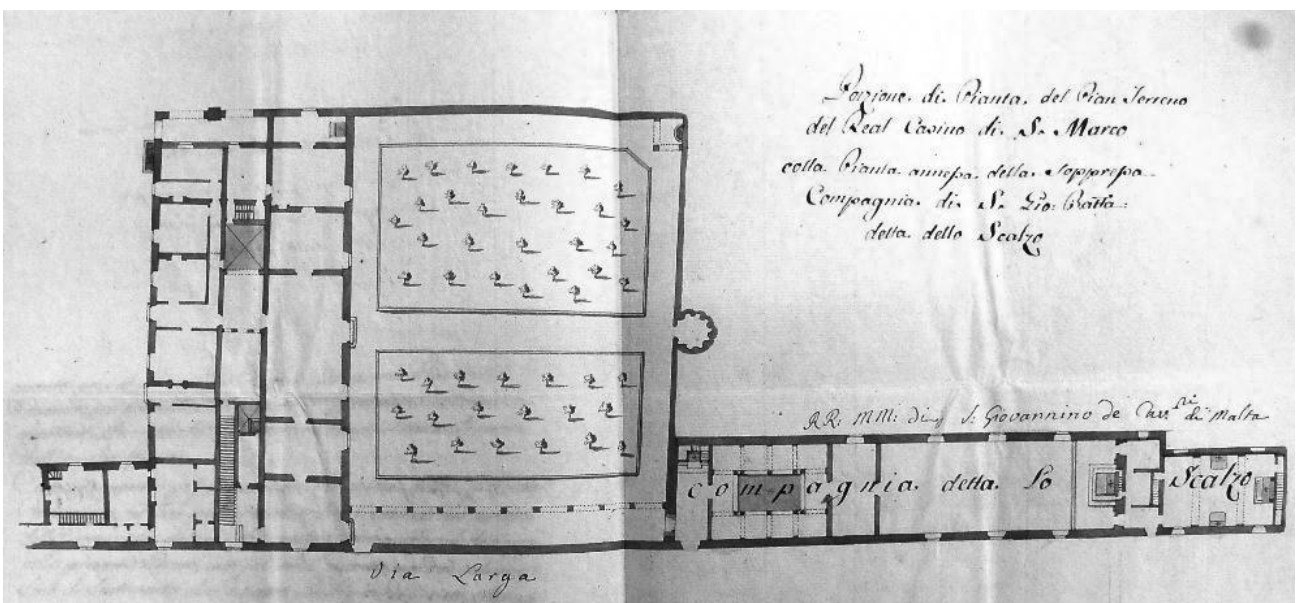 Porzione di Pianta del Pian Terreno
del Real Casino di S. Marco
colla Pianta annessa della soppressa
Compagnia di S. Gio: Batta:
detta dello Scalzo
RR: MM: di S. Giovannino de Cav.ri di Malta
compagnia detta Lo Scalzo
Via Larga